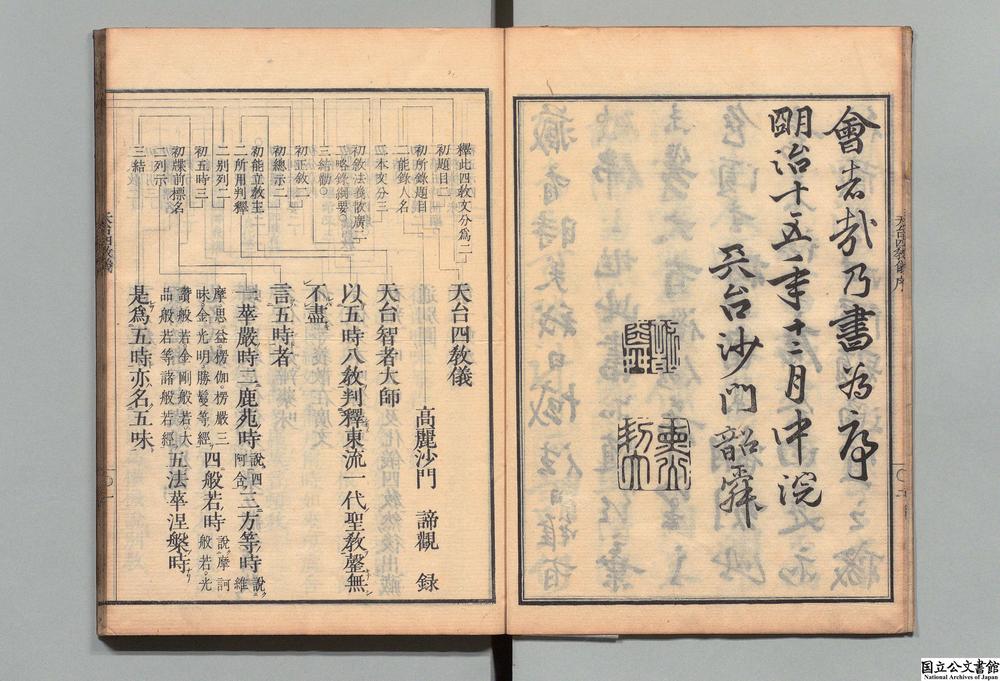 會者哉乃書為序
明治十五年十二月中浣
天台沙門韶舜
天台四教儀 序
釋此四教文分爲二
初題目二
初所錄題目
二能錄人名
二本文分三
初敘法義散廣二
初略錄綱要。
三結勸。
初正敘二
初總示二
初能立教主
二所用判釋
二別列二
初五時三
初牒前標名
二列示
三結
天台四教儀
高麗沙門 諦觀 錄
天台智者大師
以五時八教判釋東流一代聖教罄無
不盡
言五時者
一華嚴時二鹿苑時說四阿含三方等時說維
摩思益。楞伽。楞嚴三昧。金光明勝鬘等經四般若時說摩訶般若。光
讚般若金剛般若。大品般若等諸般若經五法華涅槃時。
是爲五時亦名五味
天台四教儀
一
国立公文書館
National Archives of Japan